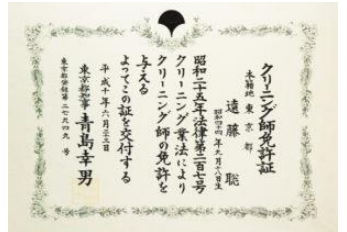 クリーニング師免許証
本籍地 東京都
遠藤 聡
昭和四十四年九月十八日生
昭和二十五年法律第二百七号
クリーニング業法により
クリーニング師の免許を
与える
よってこの証を交付する
平成十年六月三十日
東京都知事 青島幸男